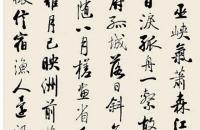 巫峽氣蕭森江
日淚孤舟一繫故
府孤城落日斜
隨八月槎畫省
蘿月已映洲前
信宿漁人還